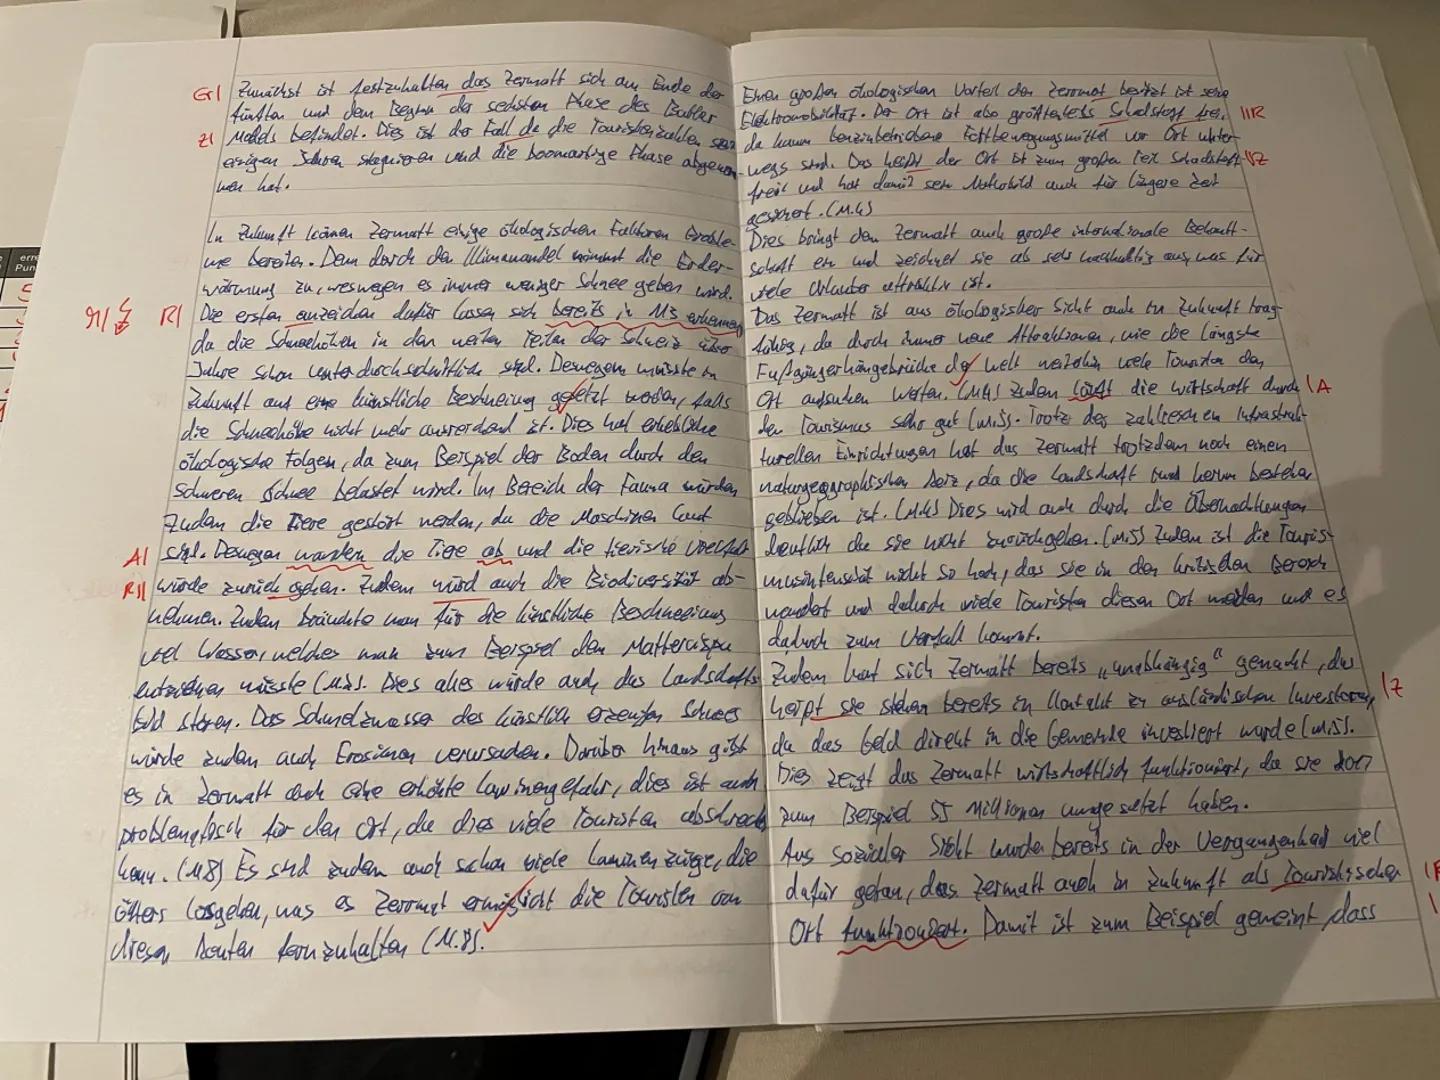 erre
Pun
5
Gr|
Zunächst ist festzuhalten das Zermatt sich am Ende der
fünften und dem Beginn der sechsten Phase des Butler
Z|
Models befindet. Dies ist der Fall da die Touristenzahlen seit
einigen Jahren stagnieren und die boomartige Phase abgenom-
men hat.
In Zukunft können Zermatt einige ökologischen Faktoren Proble-
me bereiten. Denn durch den Klimawandel nimmt die Erder-
wärmung zu, weswegen es immer weniger Schnee geben wird.
R|
Die ersten anzeichen dafür lassen sich bereits in M3 erkennen
da die Schneehöhen in den weiten Teilen der Schweiz über
Jahre schon unterdurchschnittlich sind. Deswegen müsste in
Zukunft auf eine künstliche Beschneiung gesetzt werden, falls
die Schneehöhe nicht mehr ausreichend ist. Dies hat erhebliche
ökologische Folgen, da zum Beispiel der Boden durch den
schweren Schnee belastet wird. Im Bereich der Fauna würden
zudem die Tiere gestört werden, da die Maschinen laut
A|
sind. Deswegen wandern die Tiere ab und die tierische Vielfalt
R||
würde zurück gehen. Zudem wird auch die Biodiversität ab-
nehmen. Zudem bräuchte man für die künstliche Beschneeiung
viel Wasser, welches man zum Beispiel dem
entziehen müsste (M2). Dies alles würde auch das Landschafts-
bild stören. Das Schmelzwasser des künstlich erzeugten Schnees
würde zudem auch Erosionen verursachen. Darüber hinaus gibt
es in Zermatt auch eine erhöhte Lawinengefahr, dies ist auch
problematisch für den Ort, da dies viele Touristen abschrecken
kann. (M8) Es sind zudem auch schon viele Lawinenzüge, die
öfters losgehen, was es Zermatt ermöglicht die Touristen von
diesen Routen fernzuhalten (M.8).
Einen großen ökologischen Vorteil den Zermat besitzt ist seine
Elektromobilität. Der Ort ist also größtenteils Schadstoff frei,
||R
da kaum benzinbetriebene Fortbewegungsmittel vor Ort unter-
wegs sind. Das heißt der Ort ist zum großen Teil Schadstoff-
|Z
freit und hat damit sein Naturbild auch für längere Zeit
gesichert. (M.4)
Dies bringt den Zermatt auch große internationale Bekannt-
schaft ein und zeichnet sie als sehr nachhaltig aus, was für
viele Urlauber attraktiv ist.
Das Zermatt ist aus ökologischer Sicht auch in Zukunft trag-
fähig, da durch immer neue Attraktionen, wie die längste
Fußgängerhängebrücke der Welt weiterhin viele Touristen den
Ort aufsuchen werden. Zudem läuft die Wirtschaft durch
|A
den Tourismus sehr gut (M.5). Trotz des zahlreichen Infrastruk-
turellen Einrichtungen hat das Zermatt trotzdem noch einen
naturgeographischen Reiz, da die Landschaft rund herum bestehen
geblieben ist. (M.4) Dies wird auch durch die Übernachtungen
deutlich die sie nicht zurückgehen. (M.5) Zudem ist die Touris-
musintensität nicht so hoch, das sie in den kritischen Bereich
wandert und dadurch viele Touristen diesen Ort meiden und es
dadurch zum Verfall kommt.
Zudem hat sich Zermatt bereits „unabhängig“ gemacht, das
|Z
heißt sie stehen bereits in Kontakt zu ausländischen Investoren,
da das Geld direkt in die Gemeinde investiert wurde (M.5).
Dies zeigt das Zermatt wirtschaftlich funktioniert, da sie 2017
zum Beispiel 55 Millionen umgesetzt haben.
Aus sozialer Sicht wurde bereits in der Vergangenheit viel
dafür getan, dass Zermatt auch in Zukunft als Touristischer
Ort funktioniert. Damit ist zum Beispiel gemeint, dass